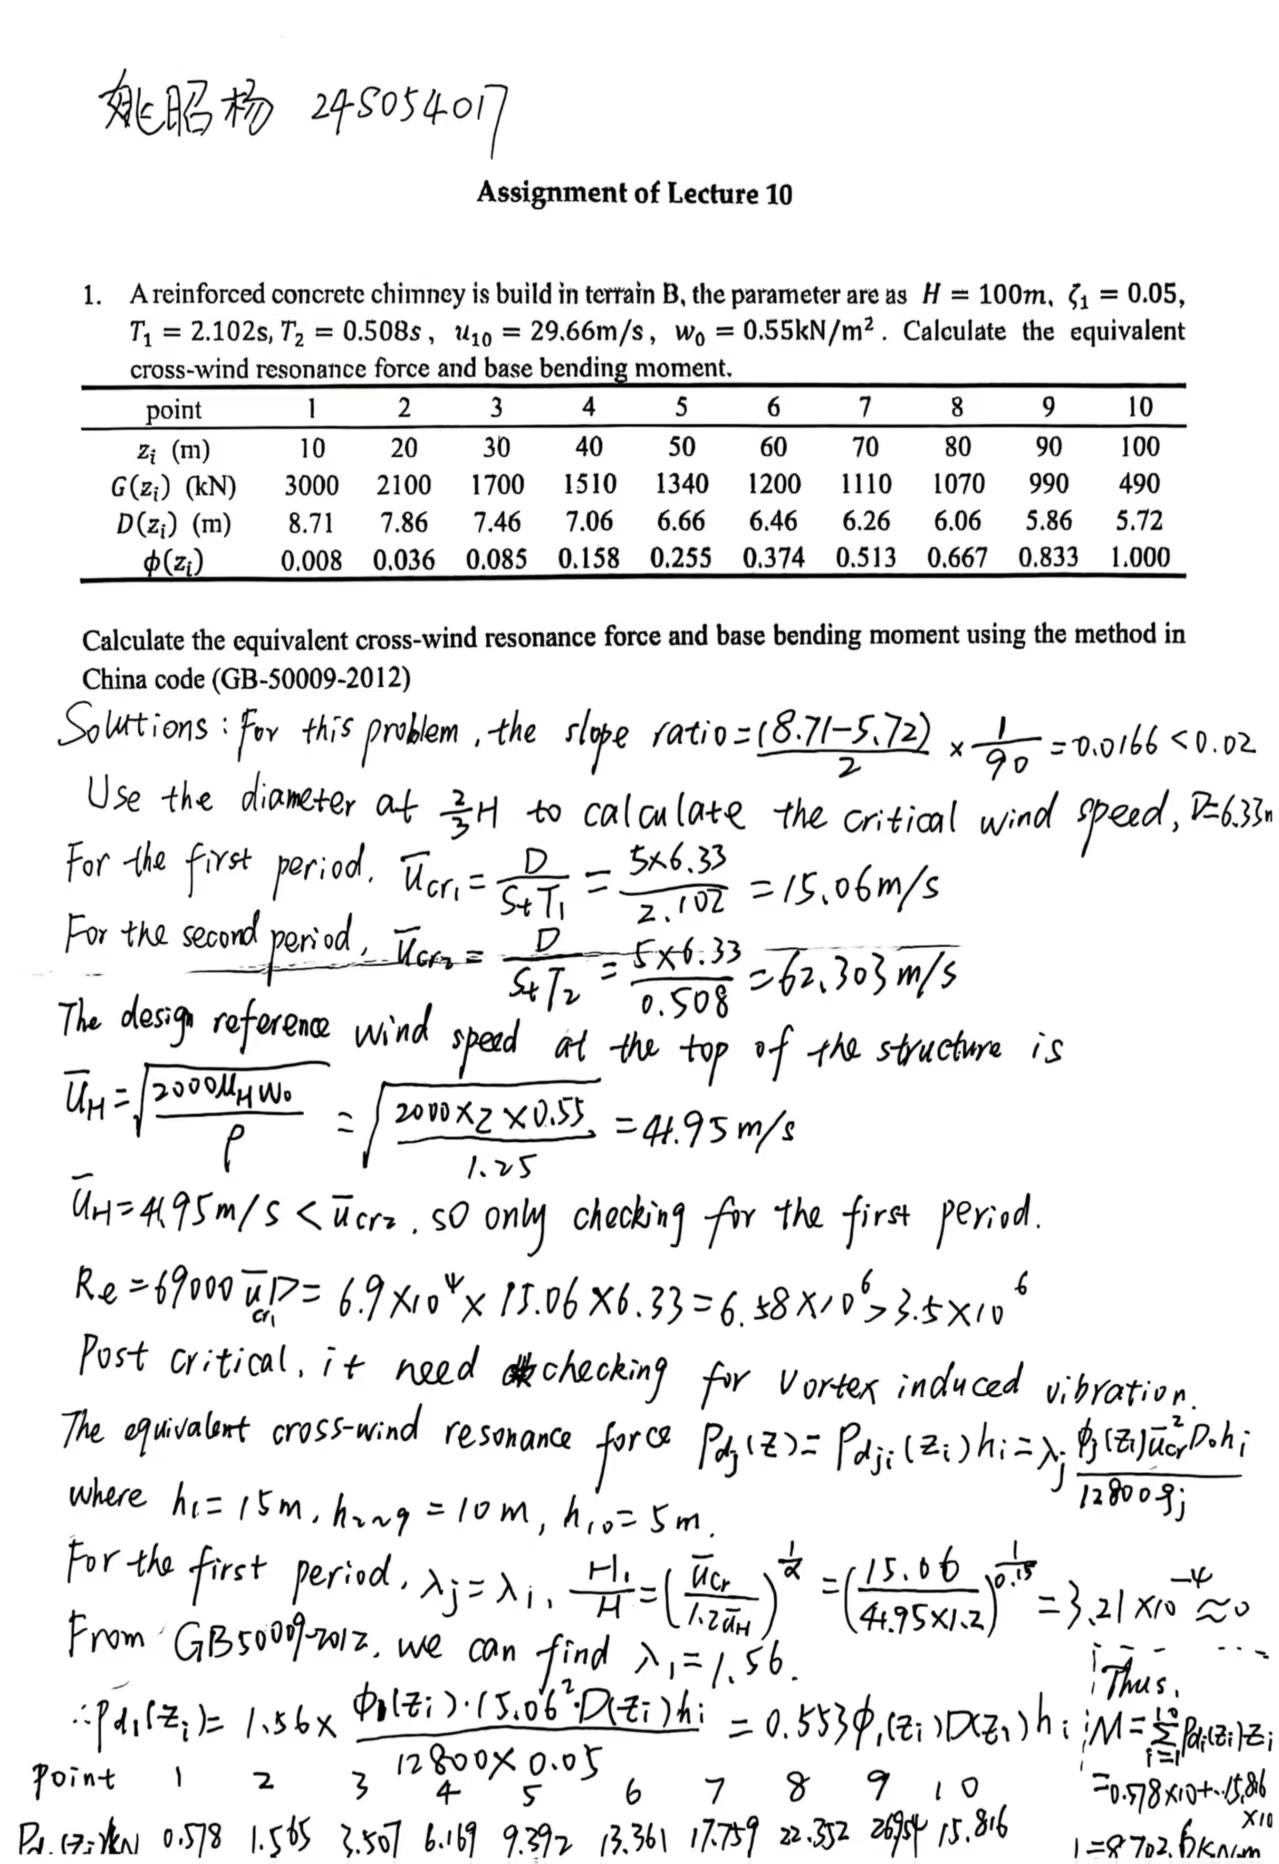 姚昭杨 245054017
Assignment of Lecture 10
1. A reinforced concrete chimney is build in terrain B, the parameter are as H = 100m, ζ₁ = 0.05,
T₁ = 2.102s, T₂ = 0.508s, u₁₀ = 29.66m/s, w₀ = 0.55kN/m². Calculate the equivalent
cross-wind resonance force and base bending moment.
point 1 2 3 4 5 6 7 8 9 10
zᵢ (m) 10 20 30 40 50 60 70 80 90 100
G(zᵢ) (kN) 3000 2100 1700 1510 1340 1200 1110 1070 990 490
D(zᵢ) (m) 8.71 7.86 7.46 7.06 6.66 6.46 6.26 6.06 5.86 5.72
ϕ(zᵢ) 0.008 0.036 0.085 0.158 0.255 0.374 0.513 0.667 0.833 1.000
Calculate the equivalent cross-wind resonance force and base bending moment using the method in
China code (GB-50009-2012)
Solutions: For this problem, the slope ratio = (8.71-5.72)/2 × 1/90 = 0.0166 < 0.02
Use the diameter at 2/3 H to calculate the critical wind speed, D=6.33m
For the first period, ūcr₁ = D/(St T₁) = 5×6.33/2.102 = 15.06m/s
For the second period, ūcr₂ = D/(St T₂) = 5×6.33/0.508 = 62.303 m/s
The design reference wind speed at the top of the structure is
ūH = √(2000μH w₀/ρ) = √(2000×2×0.55/1.25) = 41.95 m/s
ūH = 41.95 m/s < ūcr₂, so only checking for the first period.
Re = 69000 ūcr₁ D = 6.9×10⁴ × 15.06 × 6.33 = 6.58×10⁶ > 3.5×10⁶
Post critical, it need checking for vortex induced vibration.
The equivalent cross-wind resonance force Pdj(z) = Pdji(zᵢ)hi = λj ϕj(zᵢ)ūcr² D₀hi/12800ζj
where h₁ = 15m, h₂~₉ = 10m, h₁₀ = 5m.
For the first period, λj = λ₁, H₁/H = (ūcr/1.2ūH)^(1/α) = (15.06/41.95×1.2)^(1/0.15) = 3.21×10⁻⁴ ≈ 0
From GB50009-2012, we can find λ₁ = 1.56.
∴ Pd₁(zᵢ) = 1.56 × ϕ₁(zᵢ)·15.06²·D(zᵢ)hi/12800×0.05 = 0.553ϕ₁(zᵢ)D(zᵢ)hi
point 1 2 3 4 5 6 7 8 9 10
Pd₁(zᵢ)/kN 0.578 1.565 3.507 6.169 9.392 13.361 17.759 22.352 26.954 15.816
Thus,
M = Σ(i=1 to 10) Pdi(zᵢ)zᵢ
= 0.578×10+…15.816
×10
= 8702.6kN·m